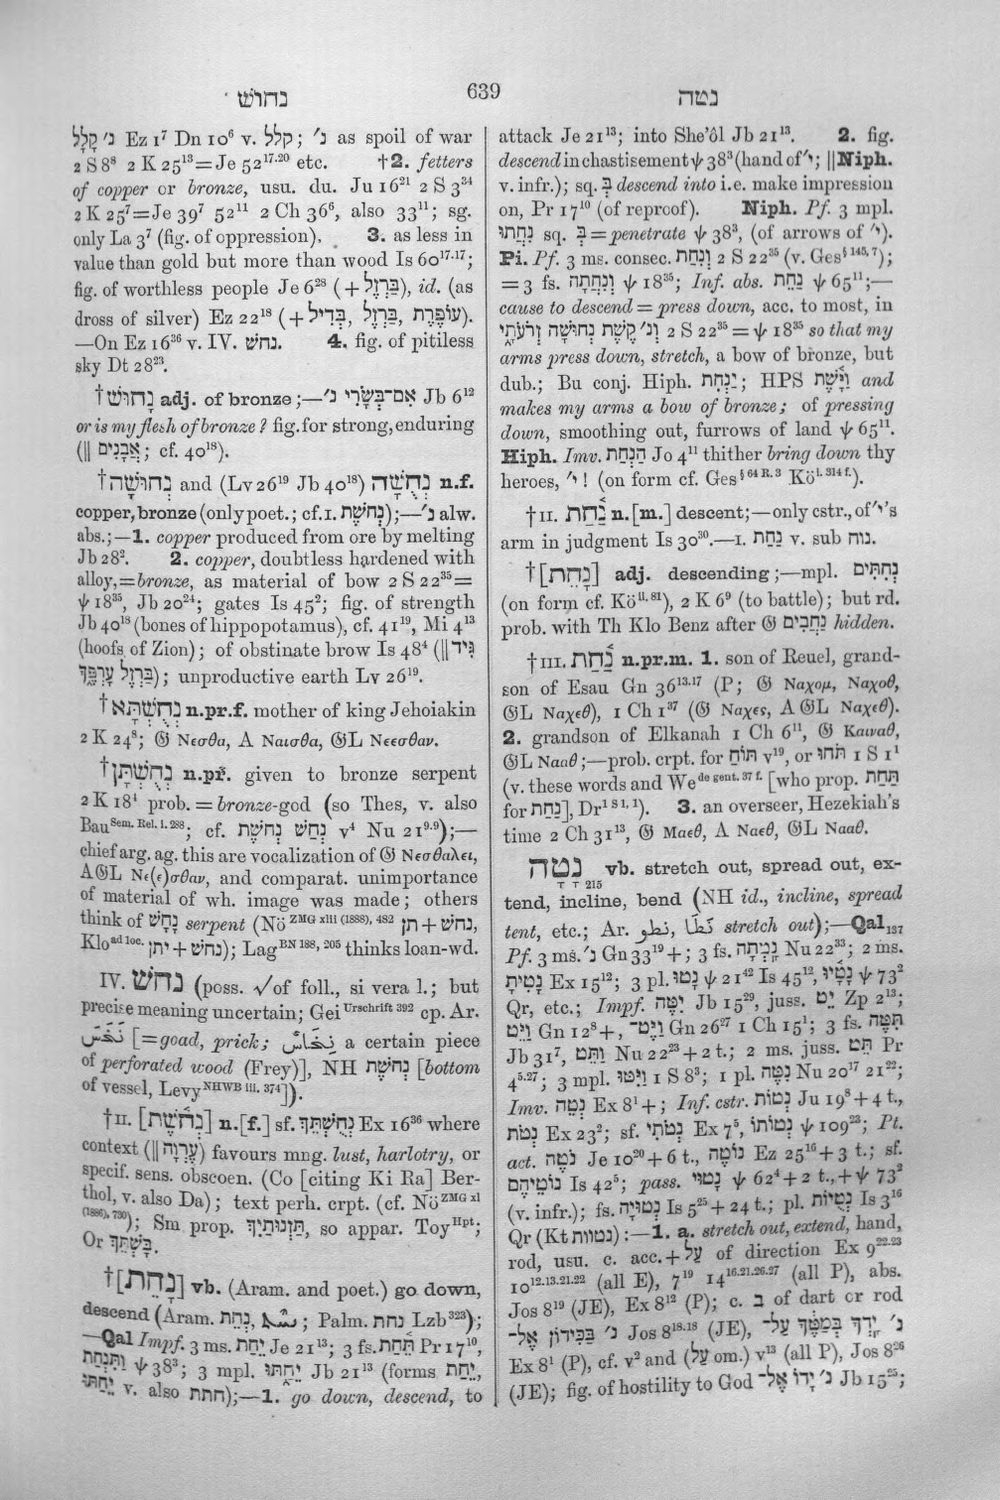 נחושׁ
639
נטה
נ׳ קָלָל Ez 1⁷ Dn 10⁶ v. קלל; נ׳ as spoil of war
2 S 8⁸ 2 K 25¹³=Je 52¹⁷·²⁰ etc. †2. fetters
of copper or bronze, usu. du. Ju 16²¹ 2 S 3³⁴
2 K 25⁷=Je 39⁷ 52¹¹ 2 Ch 36⁶, also 33¹¹; sg.
only La 3⁷ (fig. of oppression). 3. as less in
value than gold but more than wood Is 60¹⁷·¹⁷;
fig. of worthless people Je 6²⁸ (+בַּרְזֶל), id. (as
dross of silver) Ez 22¹⁸ (+עוֹפֶרֶת, בַּרְזֶל, בְּדִיל).
—On Ez 16³⁶ v. IV. נחשׁ. 4. fig. of pitiless
sky Dt 28²³.
†נָחוּשׁ adj. of bronze;—אִם־בְּשָׂרִי נ׳ Jb 6¹²
or is my flesh of bronze? fig. for strong, enduring
(‖ אֲבָנִים; cf. 40¹⁸).
†נְחוּשָׁה and (Lv 26¹⁹ Jb 40¹⁸) נְחֻשָׁה n.f.
copper, bronze (only poet.; cf. I. נְחֹשֶׁת);—נ׳ alw.
abs.;—1. copper produced from ore by melting
Jb 28². 2. copper, doubtless hardened with
alloy,=bronze, as material of bow 2 S 22³⁵=
ψ 18³⁵, Jb 20²⁴; gates Is 45²; fig. of strength
Jb 40¹⁸ (bones of hippopotamus), cf. 41¹⁹, Mi 4¹³
(hoofs of Zion); of obstinate brow Is 48⁴ (‖ גִּיד
בַּרְזֶל עָרְפֶּךָ); unproductive earth Lv 26¹⁹.
†נְחֻשְׁתָּא n.pr.f. mother of king Jehoiakin
2 K 24⁸; 𝔊 Νεσθα, A Ναισθα, 𝔊L Νεεσθαν.
†נְחֻשְׁתָּן n.pr. given to bronze serpent
2 K 18⁴ prob. = bronze-god (so Thes, v. also
Bau Sem. Rel. i. 288; cf. נְחַשׁ נְחֹשֶׁת v⁴ Nu 21⁹·⁹);—
chief arg. ag. this are vocalization of 𝔊 Νεσθαλει,
A𝔊L Νε(ε)σθαν, and comparat. unimportance
of material of wh. image was made; others
think of נָחָשׁ serpent (Nö ZMG xlii (1888), 482 נחשׁ + תן,
Klo ad loc. נחשׁ + יתן); Lag BN 188, 205 thinks loan-wd.
IV. נחשׁ (poss. √ of foll., si vera l.; but
precise meaning uncertain; Gei Urschrift 392 cp. Ar.
نَخَسَ [=goad, prick; نِخَاسٌ a certain piece
of perforated wood (Frey)], NH נְחֹשֶׁת [bottom
of vessel, Levy NHWB iii. 374]).
†II. [נְחֹשֶׁת] n.[f.] sf. נְחֻשְׁתֵּךְ Ex 16³⁶ where
context (‖ עֶרְוָה) favours mng. lust, harlotry, or
specif. sens. obscoen. (Co [citing Ki Ra] Ber-
thol, v. also Da); text perh. crpt. (cf. Nö ZMG xl
(1886), 730); Sm prop. תַּזְנוּתַיִךְ, so appar. Toy Hpt;
Or בָּשְׁתֵּךְ.
†[נָחֵת] vb. (Aram. and poet.) go down,
descend (Aram. נְחֵת, ; Palm. נחת Lzb 323);
—Qal Impf. 3 ms. יֵחַת Je 21¹³; 3 fs. תֵּחַת Pr 17¹⁰,
וַתִּנְחַת ψ 38³; 3 mpl. יֵחָתּוּ Jb 21¹³ (forms יֵחַת,
יֵחָתּוּ v. also חתת);—1. go down, descend, to
attack Je 21¹³; into She'ôl Jb 21¹³. 2. fig.
descend in chastisement ψ 38³ (hand of י׳; ‖ Niph.
v. infr.); sq. בְּ descend into i.e. make impression
on, Pr 17¹⁰ (of reproof). Niph. Pf. 3 mpl.
נִחֲתוּ sq. בְּ = penetrate ψ 38³, (of arrows of י׳).
Pi. Pf. 3 ms. consec. וְנִחַת 2 S 22³⁵ (v. Ges § 145, 7);
= 3 fs. וְנִחֲתָה ψ 18³⁵; Inf. abs. נַחֵת ψ 65¹¹;—
cause to descend = press down, acc. to most, in
וְנ׳ קֶשֶׁת נְחוּשָׁה זְרֹעֹתָי 2 S 22³⁵ = ψ 18³⁵ so that my
arms press down, stretch, a bow of bronze, but
dub.; Bu conj. Hiph. יַנְחִת; HPS וַיָּשֶׁת and
makes my arms a bow of bronze; of pressing
down, smoothing out, furrows of land ψ 65¹¹.
Hiph. Imv. הַנְחַת Jo 4¹¹ thither bring down thy
heroes, י׳! (on form cf. Ges § 64 R. 3 Kö i. 314 f.).
†II. נַ֫חַת n.[m.] descent;—only cstr., of י׳'s
arm in judgment Is 30³⁰.—I. נַחַת v. sub נוח.
†[נָחֵת] adj. descending;—mpl. נְחִתִּים
(on form cf. Kö ii. 81), 2 K 6⁹ (to battle); but rd.
prob. with Th Klo Benz after 𝔊 נֶחְבִּים hidden.
†III. נַ֫חַת n.pr.m. 1. son of Reuel, grand-
son of Esau Gn 36¹³·¹⁷ (P; 𝔊 Ναχομ, Ναχοθ,
𝔊L Ναχεθ), 1 Ch 1³⁷ (𝔊 Ναχες, A 𝔊L Ναχεθ).
2. grandson of Elkanah 1 Ch 6¹¹, 𝔊 Καιναθ,
𝔊L Νααθ;—prob. crpt. for תּוֹחַ v¹⁹, or תֹּחוּ 1 S 1¹
(v. these words and We de gent. 37 f. [who prop. תַּחַת
for נַחַת], Dr 1 S 1, 1). 3. an overseer, Hezekiah's
time 2 Ch 31¹³, 𝔊 Μαεθ, A Ναεθ, 𝔊L Νααθ.
נָטָה 215 vb. stretch out, spread out, ex-
tend, incline, bend (NH id., incline, spread
tent, etc.; Ar. نطو, نَطَا stretch out);—Qal 137
Pf. 3 ms. נ׳ Gn 33¹⁹+; 3 fs. נָטְתָה Nu 22³³; 2 ms.
נָטִיתָ Ex 15¹²; 3 pl. נָטוּ ψ 21¹² Is 45¹², נָטָיוּ ψ 73²
Qr, etc.; Impf. יִטֶּה Jb 15²⁹, juss. יֵט Zp 2¹³;
וַיֵּט Gn 12⁸+, וַיֶּט־ Gn 26²⁷ 1 Ch 15¹; 3 fs. תִּטֶּה
Jb 31⁷, וַתֵּט Nu 22²³+2 t.; 2 ms. juss. תֵּט Pr
4⁵·²⁷; 3 mpl. וַיִּטּוּ 1 S 8³; 1 pl. נִטֶּה Nu 20¹⁷ 21²²;
Imv. נְטֵה Ex 8¹+; Inf. cstr. נְטוֹת Ju 19⁸+4 t.,
נְטֹת Ex 23²; sf. נְטֹתִי Ex 7⁵, נְטוֹתוֹ ψ 109²³; Pt.
act. נֹטֶה Je 10²⁰+6 t., נוֹטֶה Ez 25¹⁶+3 t.; sf.
נוֹטֵיהֶם Is 42⁵; pass. נָטוּי ψ 62⁴+2 t.,+ψ 73²
(v. infr.); fs. נְטוּיָה Is 5²⁵+24 t.; pl. נְטֻיוֹת Is 3¹⁶
Qr (Kt נטוות):—1. a. stretch out, extend, hand,
rod, usu. c. acc.+עַל of direction Ex 9²²·²³
10¹²·¹³·²¹·²² (all E), 7¹⁹ 14¹⁶·²¹·²⁶·²⁷ (all P), abs.
Jos 8¹⁹ (JE), Ex 8¹² (P); c. ב of dart or rod
נ׳ בַּכִּידוֹן אֶל־ Jos 8¹⁸·¹⁸ (JE), נ׳ יָדְךָ בְּמַטֶּךָ עַל־
Ex 8¹ (P), cf. v² and (עַל om.) v¹³ (all P), Jos 8²⁶
(JE); fig. of hostility to God נ׳ יָדוֹ אֶל־ Jb 15²⁵;